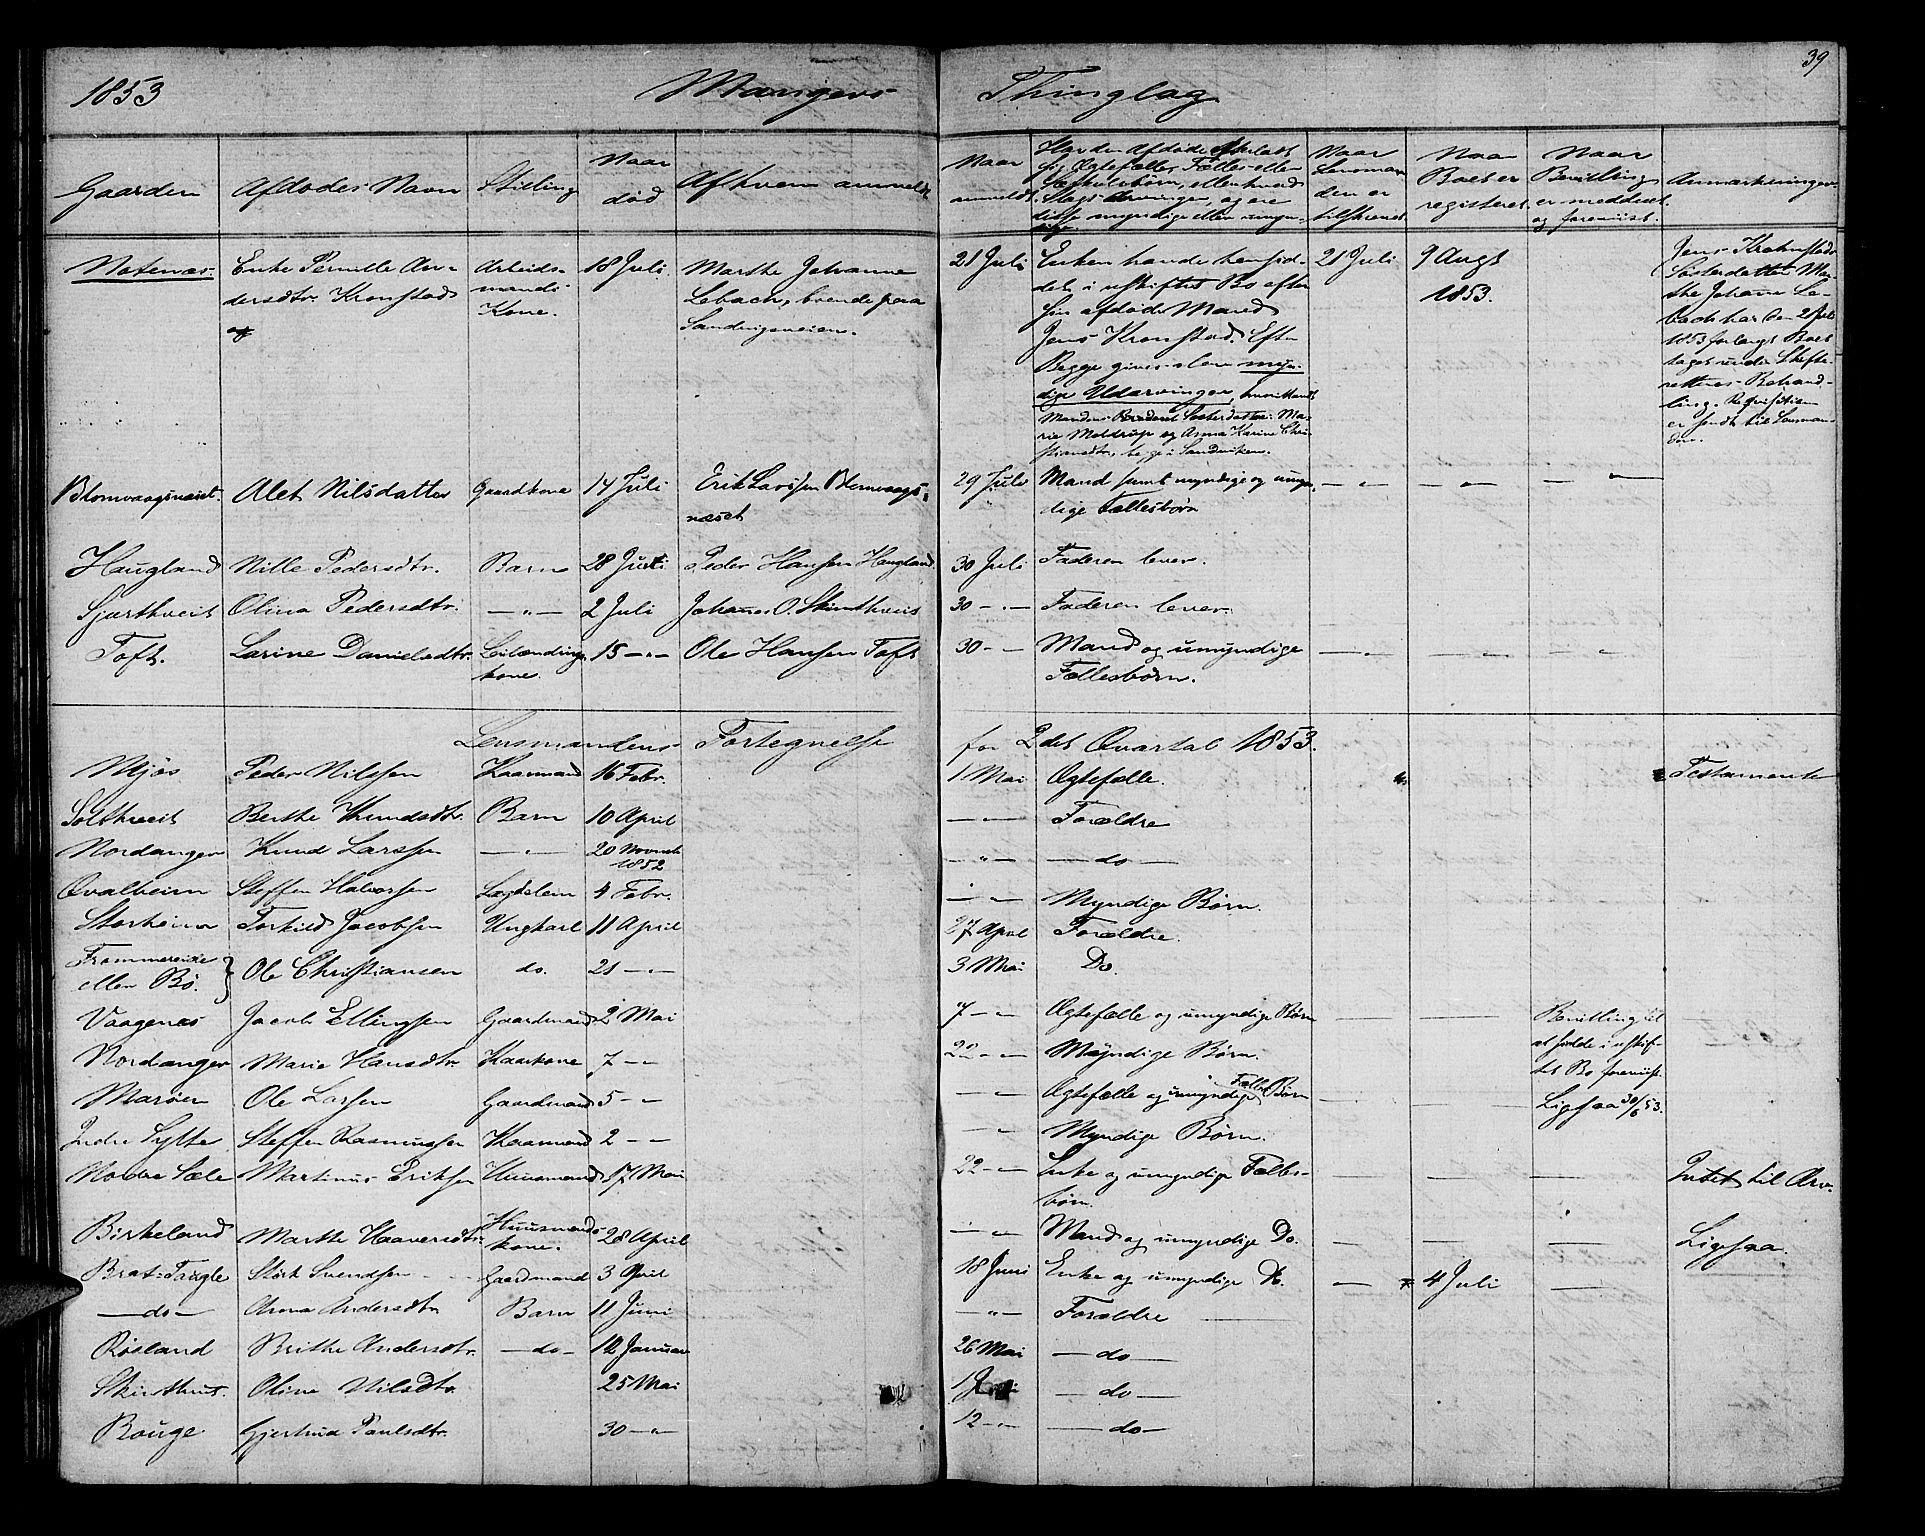 39
1853 Mangers Thinglag
Gaarden
Afdødes Navn
Stilling
Naar død
Af hvem anmeldt
Naar anmeldt
Har den Afdøde efterladt sig Ægtefælle, Fælles- eller Særkulsbørn, eller hvad Slags Arvinger, og ere disse myndige eller umyn-
Naar Lensmanden er tilskrevet
Naar Boet er registeret
Naar Bevilling er meddeelt og foreviist.
Anmærkninger
Notenæs Enke Pernille Andersdtr. Kronstad Arbeidsmands Kone. 18 Juli Marthe Johanne Lebach, boende paa Sandvigsveien. 21 Juli Enken havde hensiddet i uskiftet Bo efter sin afdøde Mand Jens Kronstad. Efter Begge gives alene myndige Udarvinger, hvoriblandt Mandens Søsterdøtre: Marie Meldrup og Anna Karine Christiansdtr., begge i Sandviken. 21 Juli 9 Augt 1853. Jens Krohnstads Søsterdatter Marthe Johanne Lebach har den 21 Juli 1853 forlangt Boet taget under Skifterettens Behandling. Requisition er sendt til Lensmanden.
Blomvaagsnæset Alet Nilsdatter Gaardkone 14 Juli Erik Larssen Blomvaagsnæset 29 Juli Mand samt myndige og umyndige Fællesbørn — " — — " — — " —
Haugland Nille Pedersdtr. Barn 28 Juni Peder Hansen Haugland 30 Juli Faderen lever.
Sjurthveit Olina Pedersdtr. — " — 2 Juli Johannes O. Skurthveit 30 — " — Faderen lever.
Toft. Larine Danielsdtr. Leilændingskone. 15 — " — Ole Hansen Toft 30 — " — Mand og umyndige Fællesbørn. — " — — " — — " —
Lensmandens Fortegnelse for 2det Qvartal 1853.
Mjøs Peder Nilssen Kaarmand 16 Febr. 1 Mai Ægtefælle. Testamente
Solthveit Berthe Knudsdtr. Barn 10 April — " — Forældre
Nordanger Knud Larssen — " — 20 Novemb 1852 — " — — do —
Qvalheim Steffen Halvorsen Lægdslem 4 Febr. — " — Myndige Børn.
Storheim Torkild Jacobsen Ungkarl 11 April 27 April Forældre.
Frommereide eller Bø. } Ole Christiansen do. 21 — " — 3 Mai Do.
Vaagenæs Jacob Ellingsen Gaardmand 2 Mai 7 — " — Ægtefælle og umyndige Børn — — Bevilling til at sidde i uskiftet Bo foreviist.
Nordanger Marie Hansdtr. Kaarkone 7 — " — 22 — " — Myndige Børn.
Marøen Ole Larsen Gaardmand 5 — " — — " — Ægtefælle og umyndige Fælles Børn — — Ligesaa 30/6 53.
Indre Sylte Steffen Rasmussen Kaarmand 2 — " — — " — Myndige Børn.
Nordre Sæle Martinus Eriksen Huusmand 17 Mai 22 — " — Enke og umyndige Fællesbørn. — — — Intet til Arv.
Birkeland Marthe Haaversdtr. Huusmandskone. 28 April — " — Mand og umyndige Do. — — — Ligesaa.
Brat-Taugle Størk Svendsen Gaardmand 3 April 18 Juni Enke og umyndige Do. — 4 Juli —
— do — Anna Andersdtr Barn 11 Juni — " — Forældre
Røsland Brithe Andersdtr. — do — 12 Januar 26 Mai — do —
Skurthveit. Oline Nilsdtr 25 Mai 1 — do —
Bouge Gjertrud Paulsdtr. 30 — " — 12 — " — — do —